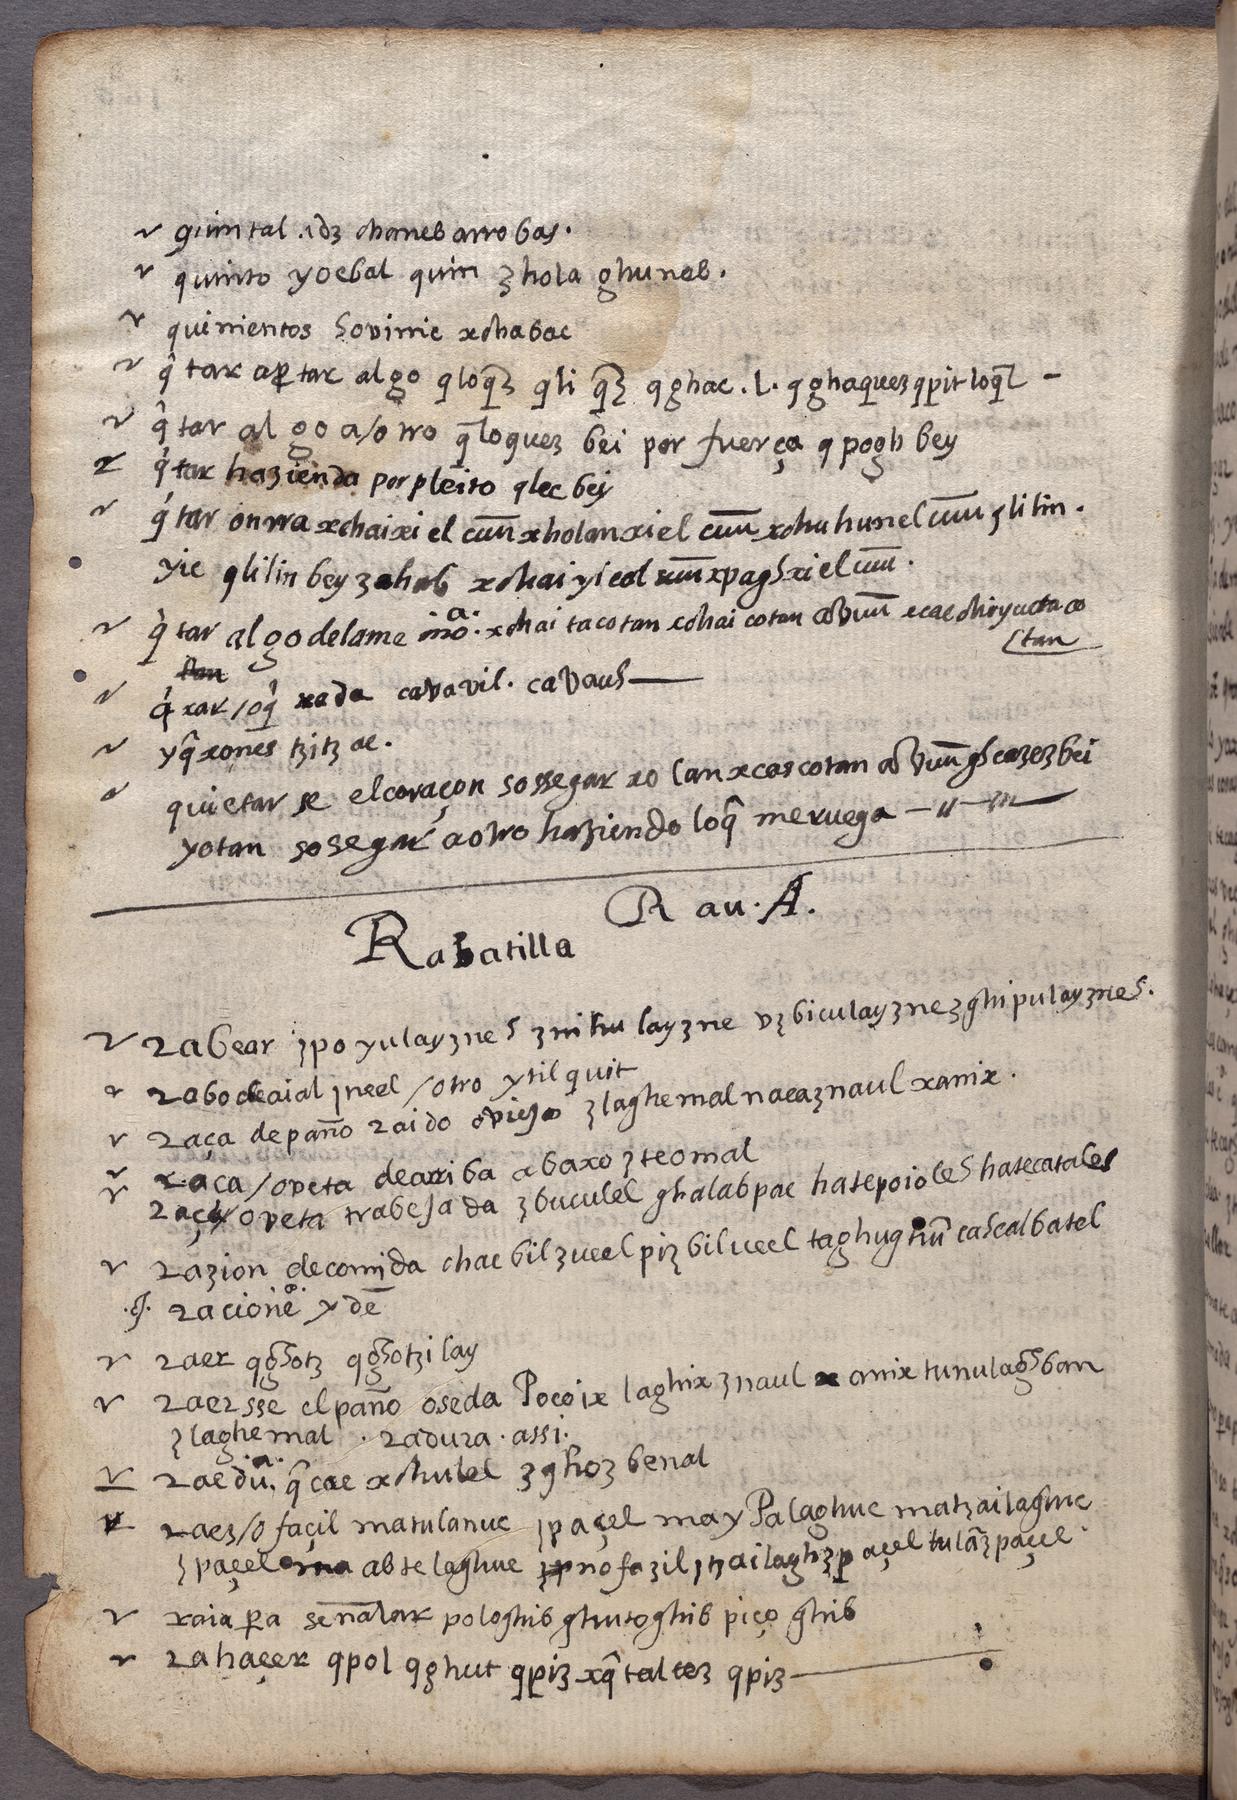 quintal .ꝫ chaneb arrobas.
quinto yoebal quin ꝫhola ghuneb.
quinientos hovinic xchabac
q̂tar apartar algo qloq̄ꝫ qli q̄ꝫ qghac .l. qghaquez qpit loq̄l –
q̂tar algo a/otro q̄loquez bei por fuerça qpogh bey
q̂tar hazienda por pleito qlec bey
q̂tar onrra xchaixi el cūn xholanxi el cūn xchuhunel cūn ꝫlilin.
yic qlilin bey ꝫahab xchai yical xpaghxi el cūn.
q̂tar algo de la me mo.ª xchai tacotan xchai cotan
tan
q̂xar /oq̂xada cavavil. cavauh
yq̂xones tzitz ae.
quietar se el coraçon sossegar xo lan xcas cotan
yotan sosegar a otro haziendo loq̂ me ruega
R au. A.
Rabatilla
rabear ꝫpo yulay ꝫneh ꝫnihu lay ꝫne vꝫbiculay ꝫne ꝫghipulay ꝫneh.
rabo de aial ꝫneel /otro ytil quit
raça de paño raido o viejo ꝫlaghemal nacaꝫnaul xamix.
raça /o veta de arriba abaxo ꝫteomal
raça/o veta trabesada ꝫbuculel ghalabpac hatepoioleh hatecatales
razion de comida chac bil ꝫueel piꝫbil ueel taghughū cascalbatel
racione.º ydē
raer qghotz qghotzilay
raersse el paño o seda Pocoix laghix ꝫnaul x amix tunulaghbam
ꝫlaghemal . radura . assi.
raedu.ª q̂cae xchulel ꝫghoꝫ benal
raez/o façil matulanuc ꝫpaçel may Palaghuc matzailaghuc
ꝫpaçel ma abtelaghuc no fazil ꝫtzailagh ꝫpaçel tulā ꝫpaçel.
raia pa señalar pologhib ghutoghib piço ghib
rahaçer qpol qghut qpiꝫ xq̂taltez qpiꝫ